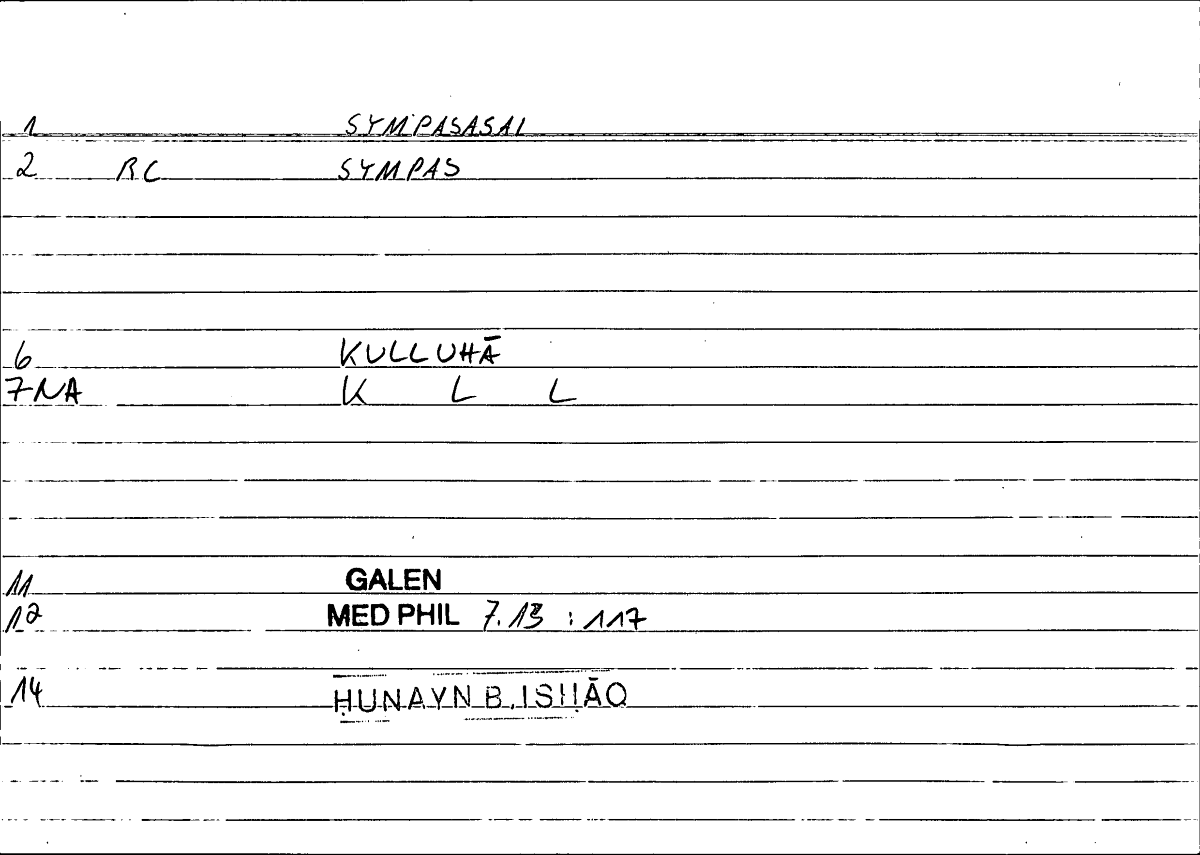 1 SYMPASASAI
2 RC SYMPAS
6 KULLUHĀ
7NA K L L
11 GALEN
12 MED PHIL 7.13 : 117
14 ḤUNAYN B. ISḤĀQ